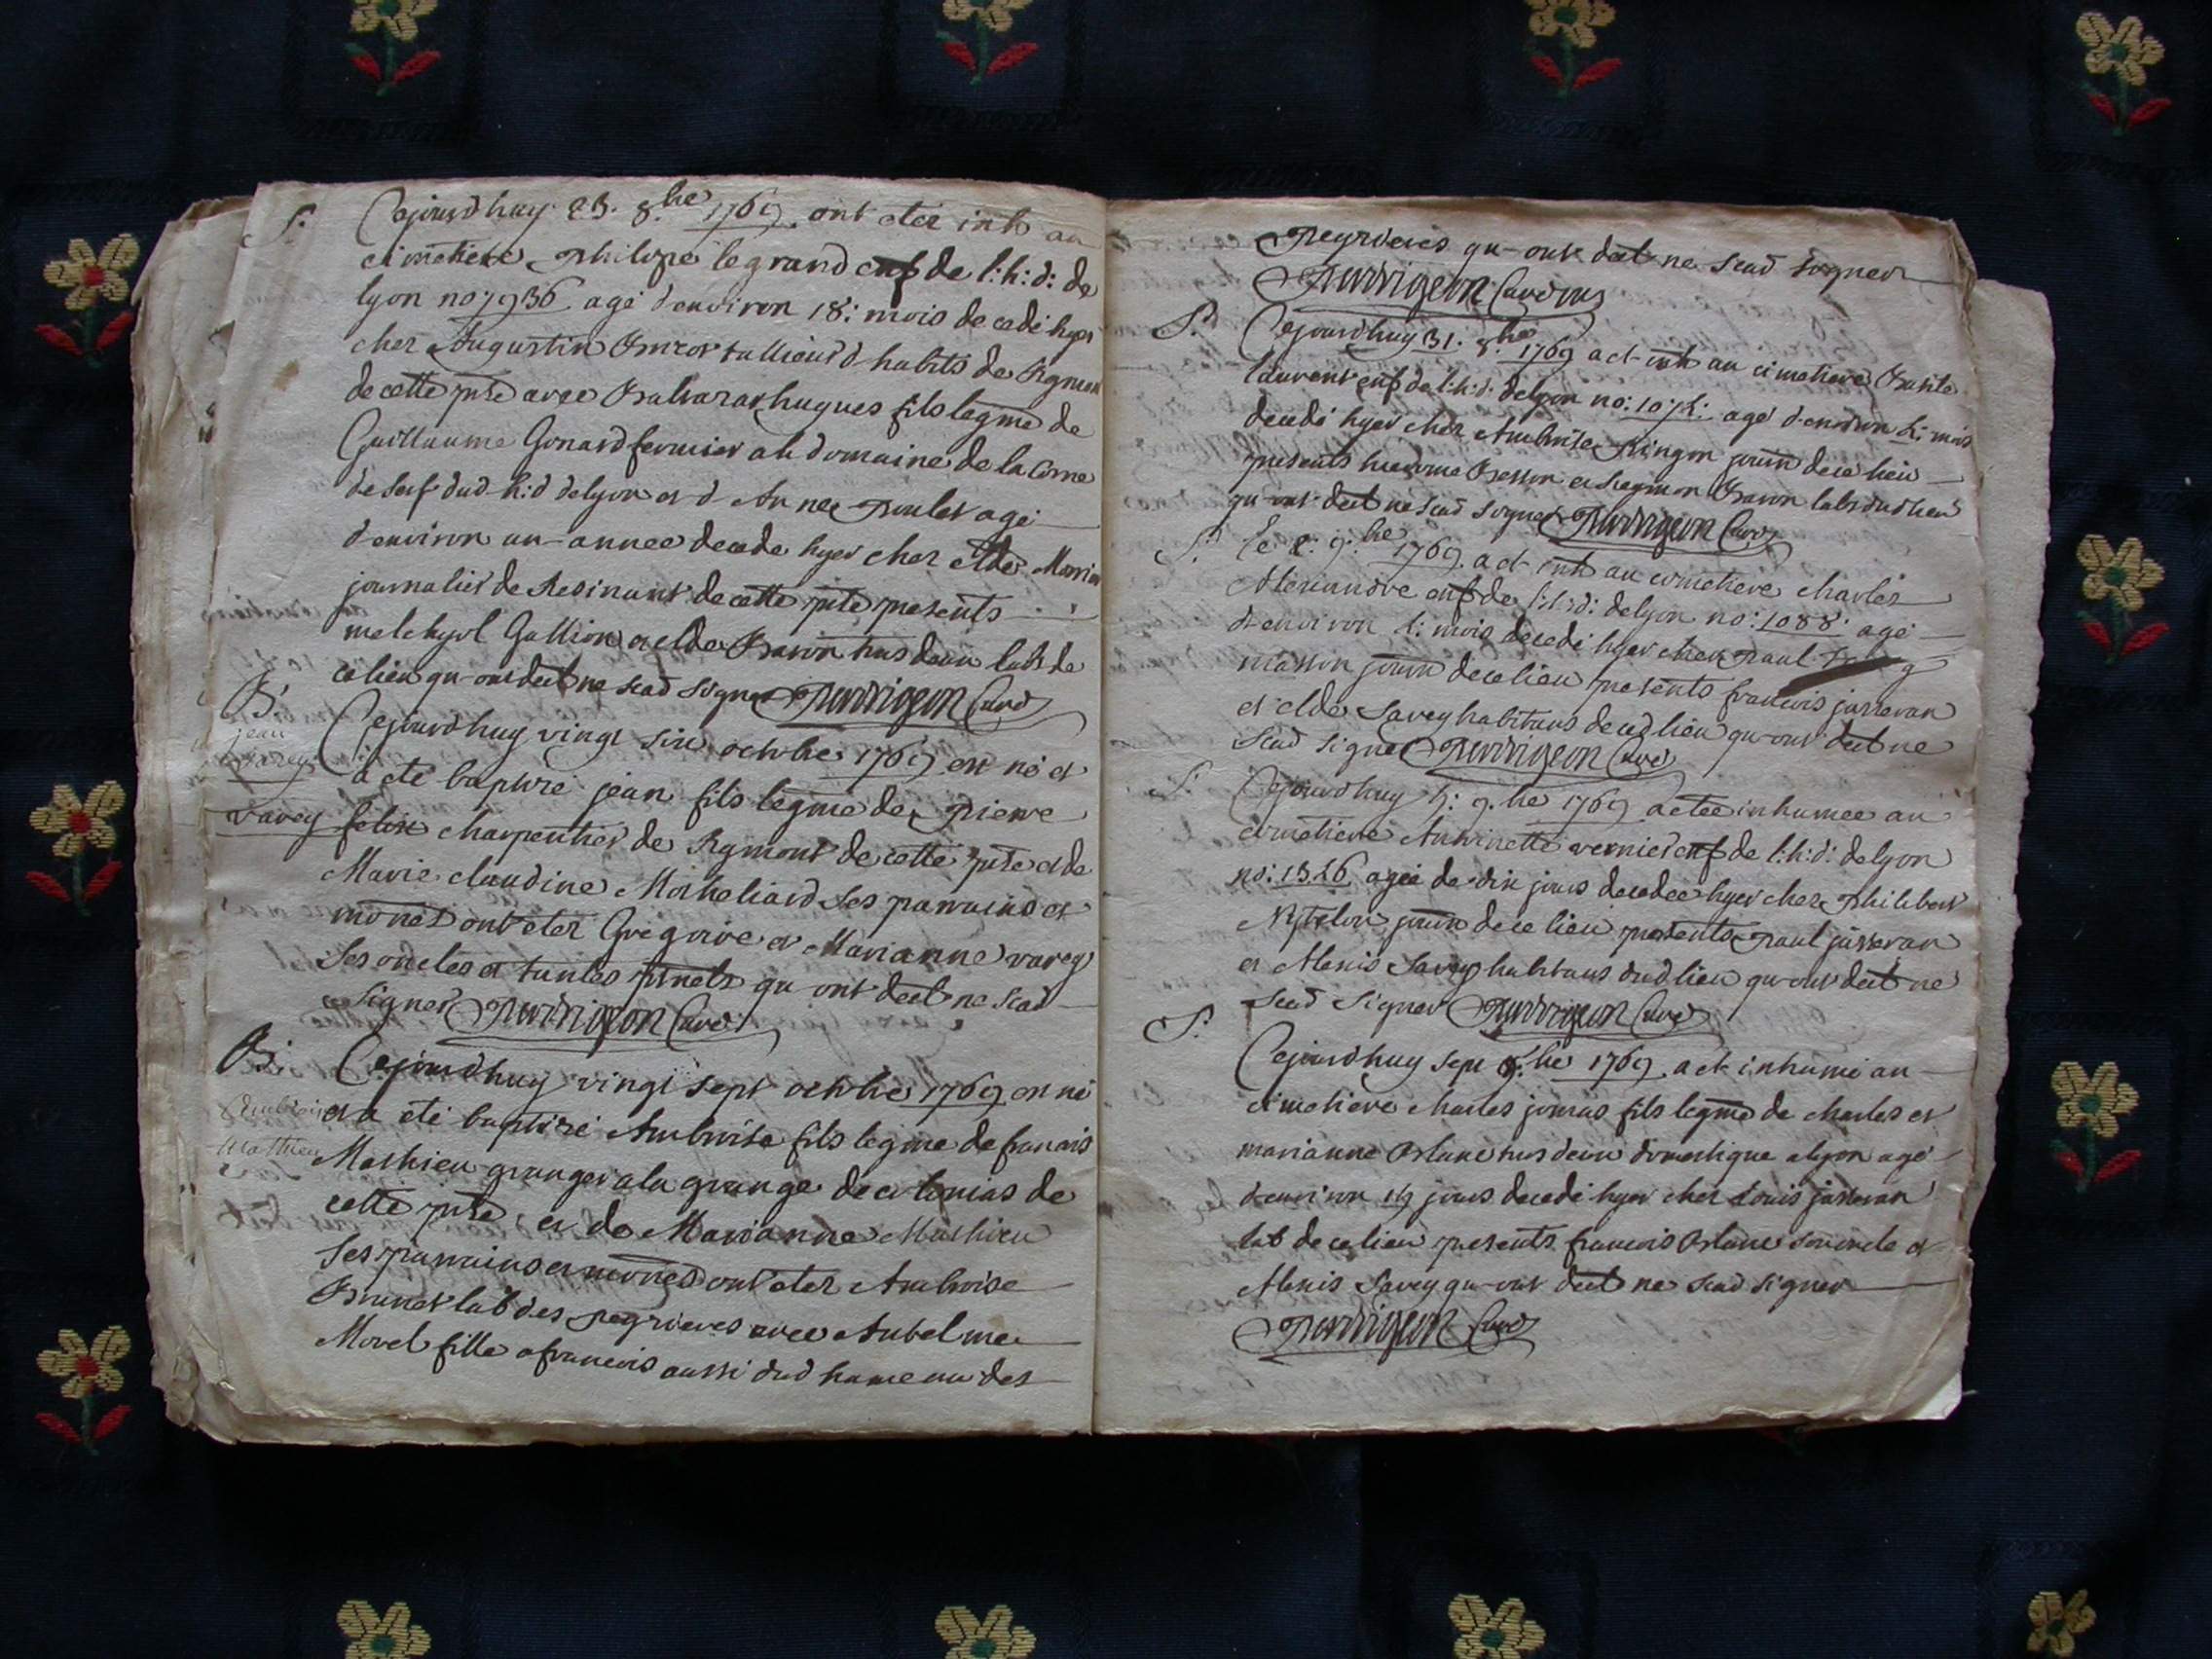 S.
Cejourdhuy 23. 8.bre 1769. ont eter inh au
cimetiere philipe legrand enf de l:h:d: de
lyon no: 7936 agé denviron 18: mois decedé hyer
chez Augustin tallieur d habits de Rigmon
de cette psse avec Baltazar hugues fils legme de
Guillaume Gonard fermier ah domaine de la Corne
de serf dud h:d delyon et d Annee Poulet agé
denviron un-annee decede hyer chez clde
journalier de Resinant de cette psse presents
melchyol Gallion et clde Baron tus deux labs de
ce lieu qu-ont deet ne scad signer Perrrigeon Curé
B.
jean
varey
Cejourdhuy vingt six octobre 1769 est né et
a eté baptizé jean fils legme de Pierre
varey felix charpentier de Rymont de cette psse et de
Marie claudine Motheliard ses parrains et
mones ont eter Gregoire et Marianne varey
ses oncles et tantes prnels qu ont deet ne scad
signer Perrrigeon Curé
B:
Ambroise
Mathieu
Cejourdhuy vingt sept octobre 1769 est né
et a eté baptizé Ambroise fils legme de francois
Mathieu granger a la grange de de
cette psse et de Marianne Mathieu
ses parrains et mones ont eter Ambroise
Brunet lab des pegrieres avec Antelme
Morel fille a francois aussi dud hameau des
pegrieres qu-ont deet ne scad signer
Perrrigeon Curé
S.
Cejourdhuy 31. 8.bre 1769 a et inh au cimetiere
laurent enf de l:h:d: delyon no: agé denviron mois
decedé hyer chez Ambroise Pingon journ de ce lieu
presents hierome Besson et Baron labs dud lieu
qu-ont deet ne scad signer Perrrigeon Curé
S.
le 2: 9.bre 1769. a et inh au cimetiere charles
Alexandre enf de l:h:d: delyon no: 1088: agé
denviron mois decedé hyer chez Paul
masson journ de ce lieu presents francois jasseran
et clde Savey habitans de ced lieu qu-ont deet ne
scad signer Perrrigeon Curé
S.
Cejourdhuy 9.bre 1769 a etee inhumee au
cimetiere Antoinette vernier enf de l:h:d: delyon
no: 1326 agée de dix jours decedee hyer chez Philibert
journ de ce lieu presents Paul jasseran
et Alexis Savey habitans dud lieu qu-ont deet ne
scad signer Perrrigeon Curé
S.
Cejourdhuy sept 9.bre 1769. a et inhumé au
cimetiere charles jomas fils legme de charles et
marianne tus deux domestique a lyon agé
denviron jours decedé hyer chez Louis jasseran
lab de ce lieu presents francois son oncle et
Alexis Savey qu-ont deet ne scad signer
Perrrigeon Curé